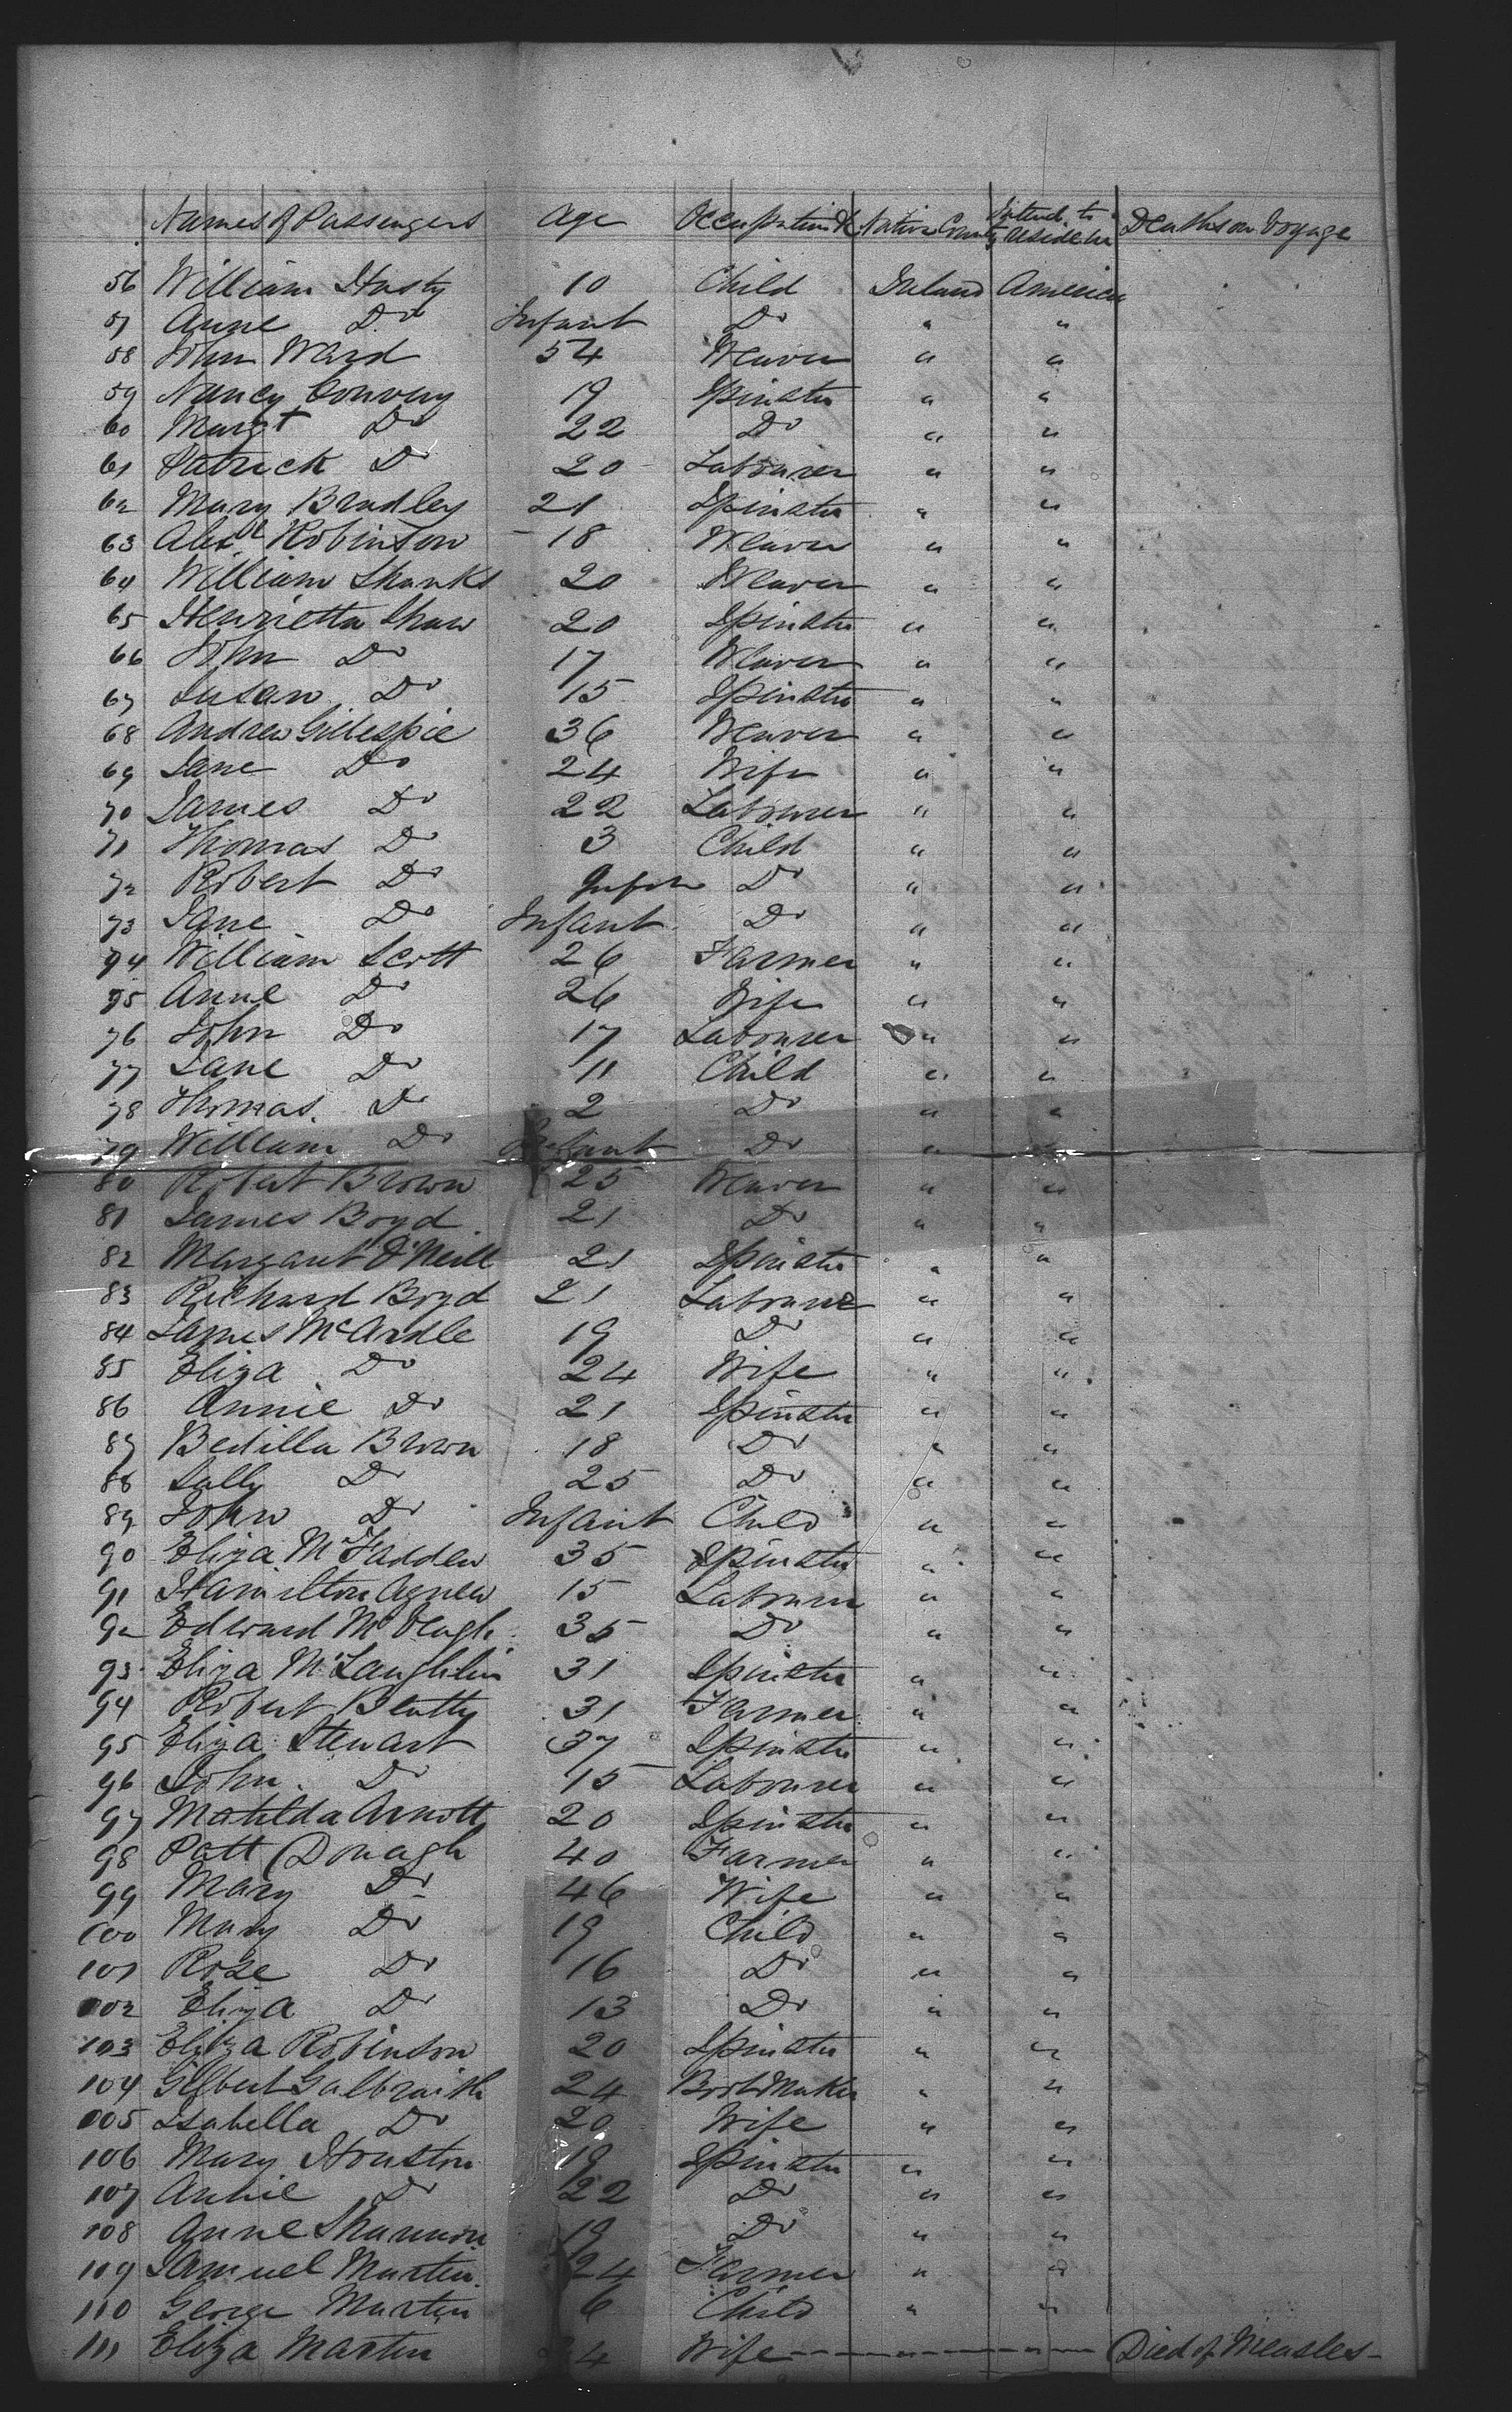 Names of Passengers Age Occupation &c Native County Intend to reside in Deaths on Voyage
56 William Hasty 10 Child Ireland America
57 Anne Do Infant Do " "
58 John Ward 54 Weaver " "
59 Nancy Convery 19 Spinster " "
60 Margt Do 22 Do " "
61 Patrick Do 20 Labourer " "
62 Mary Bradley 21 Spinster " "
63 Alexr Robinson 18 Weaver " "
64 William Shanks 20 Weaver " "
65 Henrietta Shaw 20 Spinster " "
66 John Do 17 Weaver " "
67 Susan Do 15 Spinster " "
68 Andrew Gillespie 36 Weaver " "
69 Jane Do 24 Wife " "
70 James Do 22 Labourer " "
71 Thomas Do 3 Child " "
72 Robert Do Infant Do " "
73 Jane Do Infant Do " "
74 William Scott 26 Farmer " "
75 Anne Do 26 Wife " "
76 John Do 17 Labourer " "
77 Jane Do 11 Child " "
78 Thomas Do 2 Do " "
79 William Do Infant Do " "
80 Robert Brown 25 Weaver " "
81 James Boyd 21 Do " "
82 Margaret O'Neill 21 Spinster " "
83 Richard Boyd 21 Labourer " "
84 James McArdle 19 Do " "
85 Eliza Do 24 Wife " "
86 Annie Do 21 Spinster " "
87 Bedilla Brown 18 Do " "
88 Sally Do 25 Do " "
89 John Do Infant Child " "
90 Eliza McFadden 35 Spinster " "
91 Hamilton Agnew 15 Labourer " "
92 Edward 35 Do " "
93 Eliza McLaughlin 31 Spinster " "
94 Robert Beatty 31 Farmer " "
95 Eliza Stewart 37 Spinster " "
96 John Do 15 Labourer " "
97 Matilda Arnott 20 Spinster " "
98 Patt Donagh 40 Farmer " "
99 Mary Do 46 Wife " "
100 Mary Do 19 Child " "
101 Rose Do 16 Do " "
102 Eliza Do 13 Do " "
103 Eliza Robinson 20 Spinster " "
104 Gilbert Galbraith 24 Boot Maker " "
105 Isabella Do 20 Wife " "
106 Mary Houston 19 Spinster " "
107 Annie Do 22 Do " "
108 Anne Shannon 19 Do " "
109 Samuel Martin 24 Farmer " "
110 George Martin 6 Child " "
111 Eliza Martin 24 Wife Died of Measles